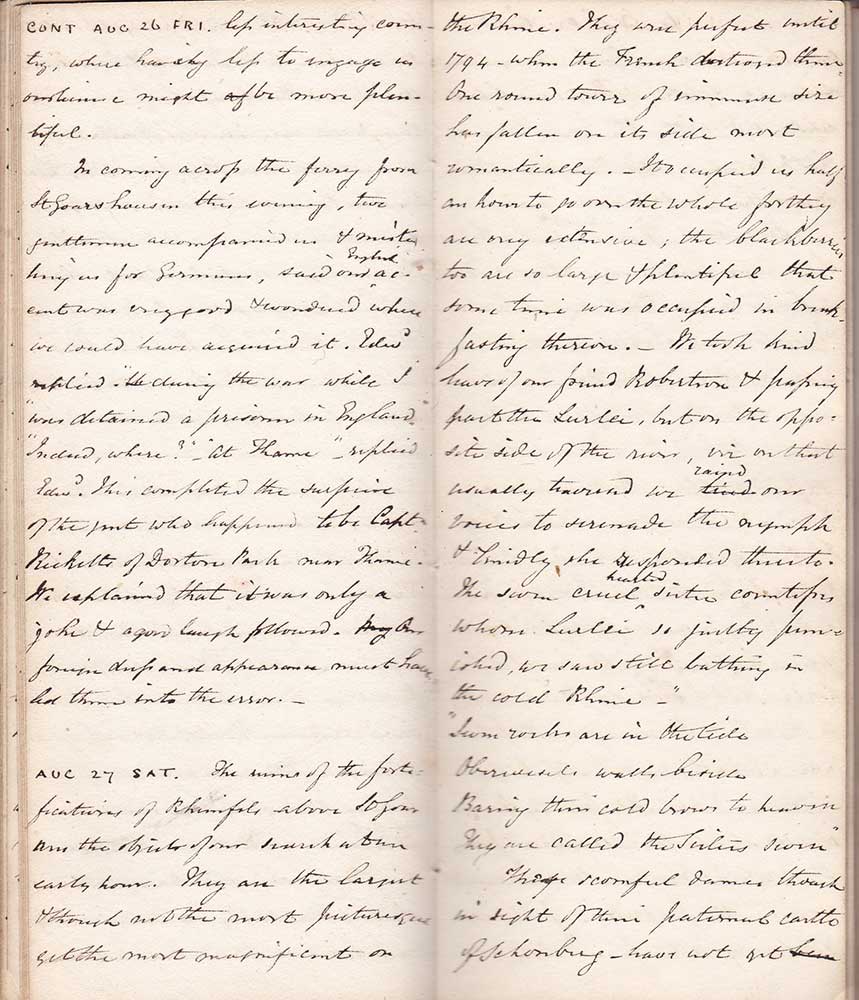 CONT AUG 26 FRI. less interesting coun-
try, where having less to engage us
our shine might be more plen-
tiful.
In coming across the ferry from
St Goarshausen this evening, two
gentlemen accompanied us & mista-
king us for Germans, said our English ac-
cent was very good & wondered where
we would have acquired it. Edwd
replied "during the war while I
"was detained a prisoner in England."
"Indeed, where?" - "At Thame" - replied
Edwd. This completed the surprise
of the gent who happened to be Capt.
Ricketts of Dorton Park near Thame.
We explained that it was only a
joke & a good laugh followed. Our
foreign dress and appearance must have
led them into the error. -
AUG 27 SAT. The ruins of the forti-
fications of Rheinfels above St Goar
were the objects of our search at an
early hour. They are the largest
& though not the most picturesque
yet the most magnificent on
the Rhine. They were perfect until
1794 - when the French destroyed them.
One round tower of immense size
has fallen on its side most
romantically. - It occupied us half
an hour to go over the whole for they
are very extensive; the blackberries
too are so large & plentiful that
some time was occupied in break-
fasting thereon. - We took kind
leave of our friend Robertson & passing
past the Lurlei, but on the oppo-
site side of the river, viz on that
usually traversed we raised our
voices to serenade the nymph
& kindly she responded thereto.
The seven cruel hearted sister countesses
whom Lurlei so justly pun-
ished, we saw still bathing in
the cold Rhine -"
"Seven rocks are in the tide
Oberwesels walls beside
Baring their cold brows to heaven
They are called the Sisters seven"
These scornful dames though
in sight of their paternal castle
of Schonberg - have not yet been